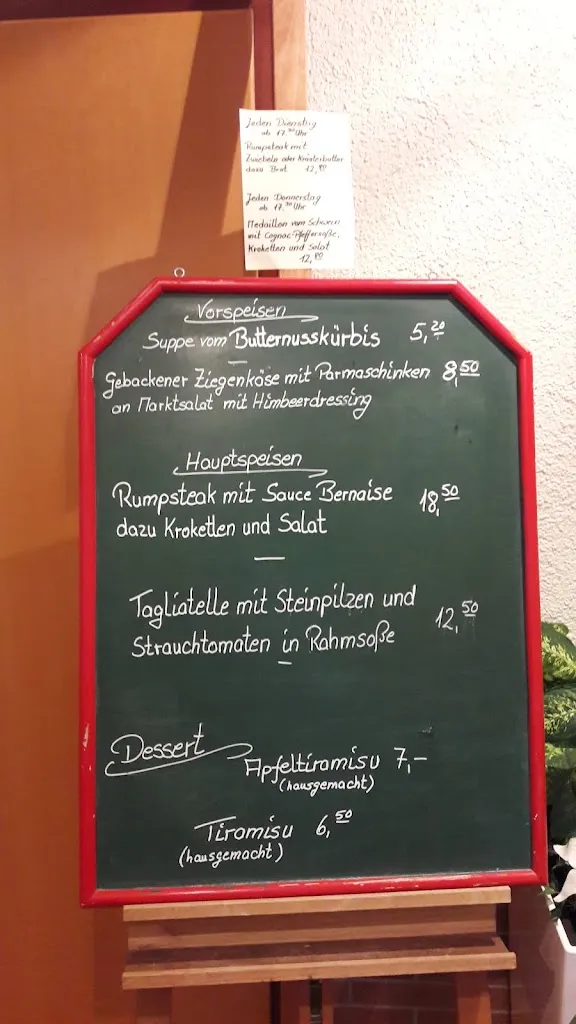 Jeden Dienstag
ab 17.30 Uhr
Rumpsteak mit
Zwiebeln oder Kräuterbutter
dazu Brot 12,90
Jeden Donnerstag
ab 17.30 Uhr
Medaillon vom Schwein
mit Cognac-Pfeffersoße,
Kroketten und Salat
Vorspeisen
Suppe vom Butternusskürbis 5,20
Gebackener Ziegenkäse mit Parmaschinken 8,50
an Marktsalat mit Himbeerdressing
Hauptspeisen
Rumpsteak mit Sauce Bernaise 18,50
dazu Kroketten und Salat
Tagliatelle mit Steinpilzen und
Strauchtomaten in Rahmsoße 12,50
Dessert
Apfeltiramisu 7,-
(hausgemacht)
Tiramisu 6,50
(hausgemacht)